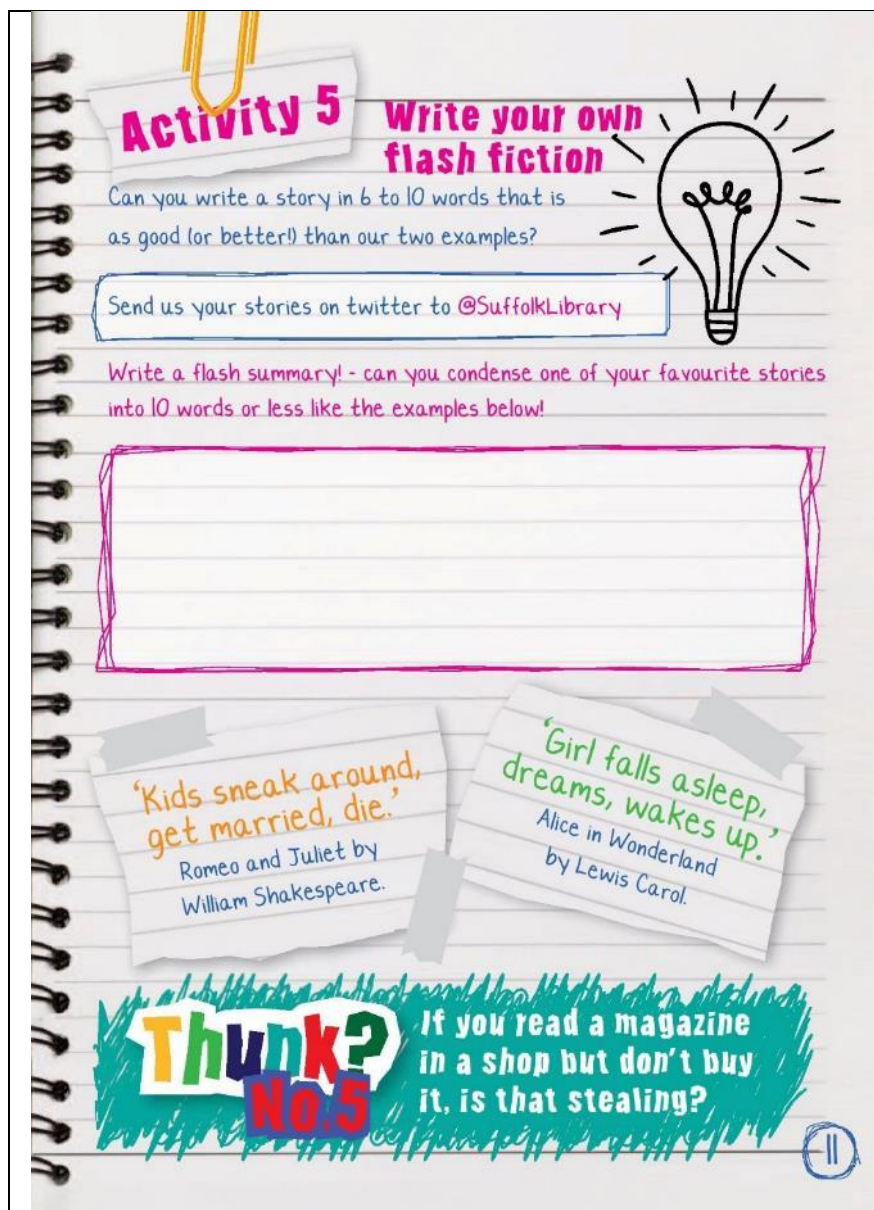 Activity 5
Write your own
flash fiction
Can you write a story in 6 to 10 words that is
as good (or better!) than our two examples?
Send us your stories on twitter to @SuffolkLibrary
Write a flash summary! - can you condense one of your favourite stories
into 10 words or less like the examples below!
'Kids sneak around,
get married, die.'
Romeo and Juliet by
William Shakespeare.
'Girl falls asleep,
dreams, wakes up.'
Alice in Wonderland
by Lewis Carol.
Thunk?
No.5
If you read a magazine
in a shop but don't buy
it, is that stealing?
11